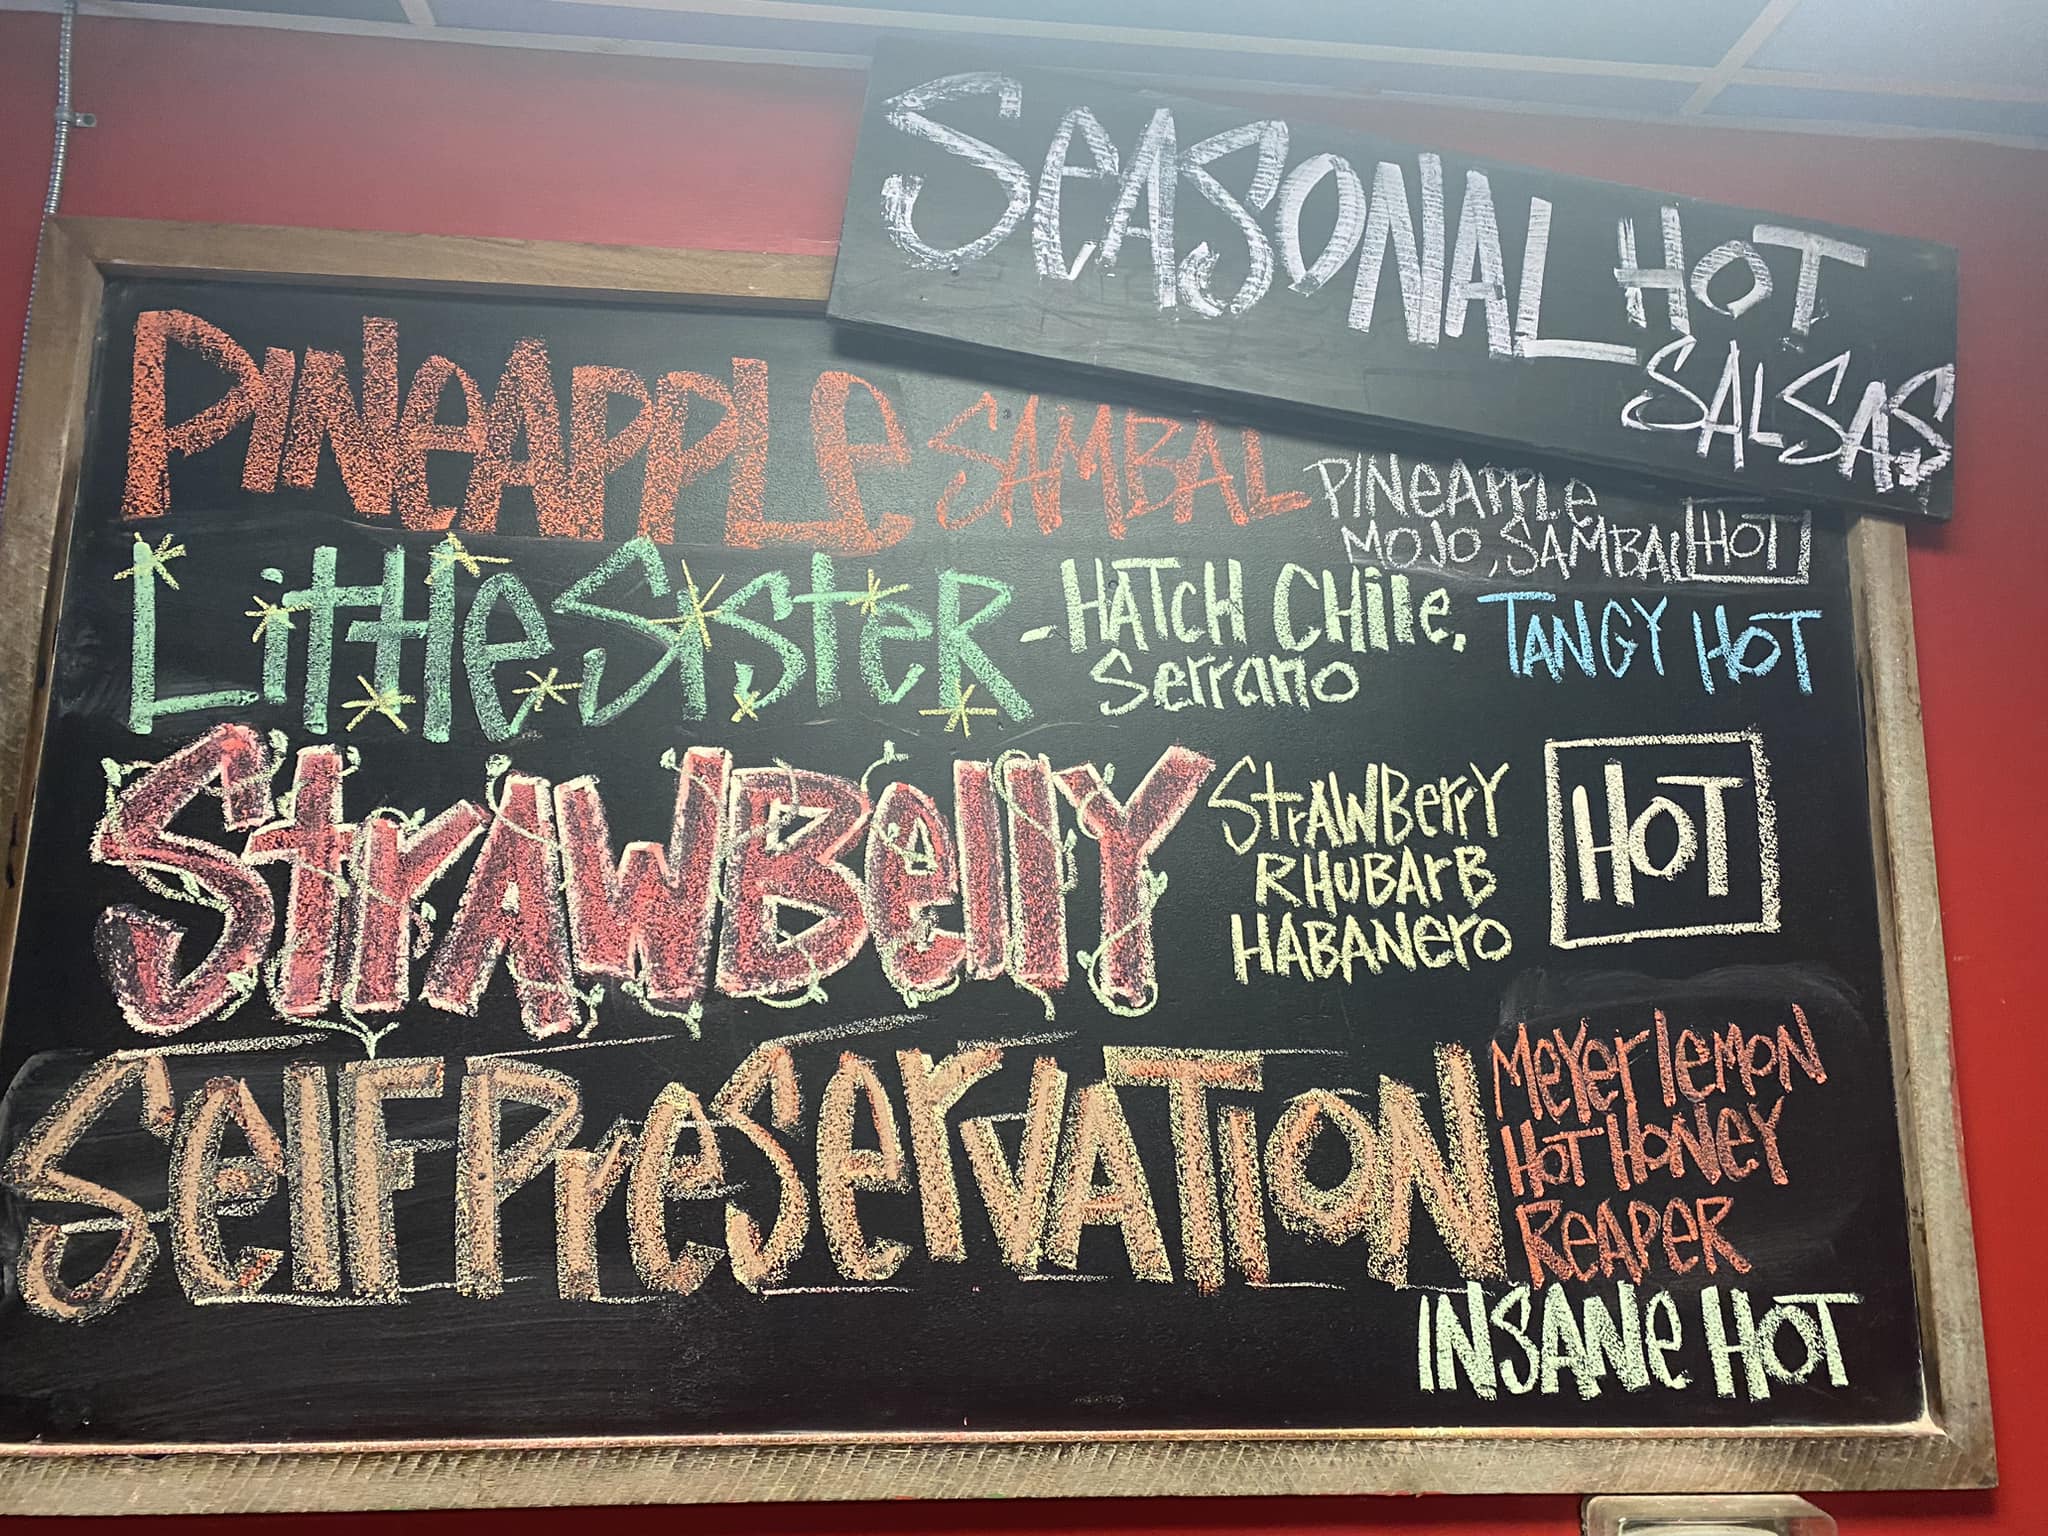 SeASONAL HOT
SALSAS
PINeAPPLe SAMBAL
PINeAPPLe
MOJO, SAMBAL HOT
Little SisteR - HATCH CHile,
Serrano
TANGY HOT
StrAWBellY
StrAWBerrY
RHUBARB
HABANerO
HOT
Self PreServATiON
MeYer lemON
HOT HONeY
REAPER
INSANe HOT